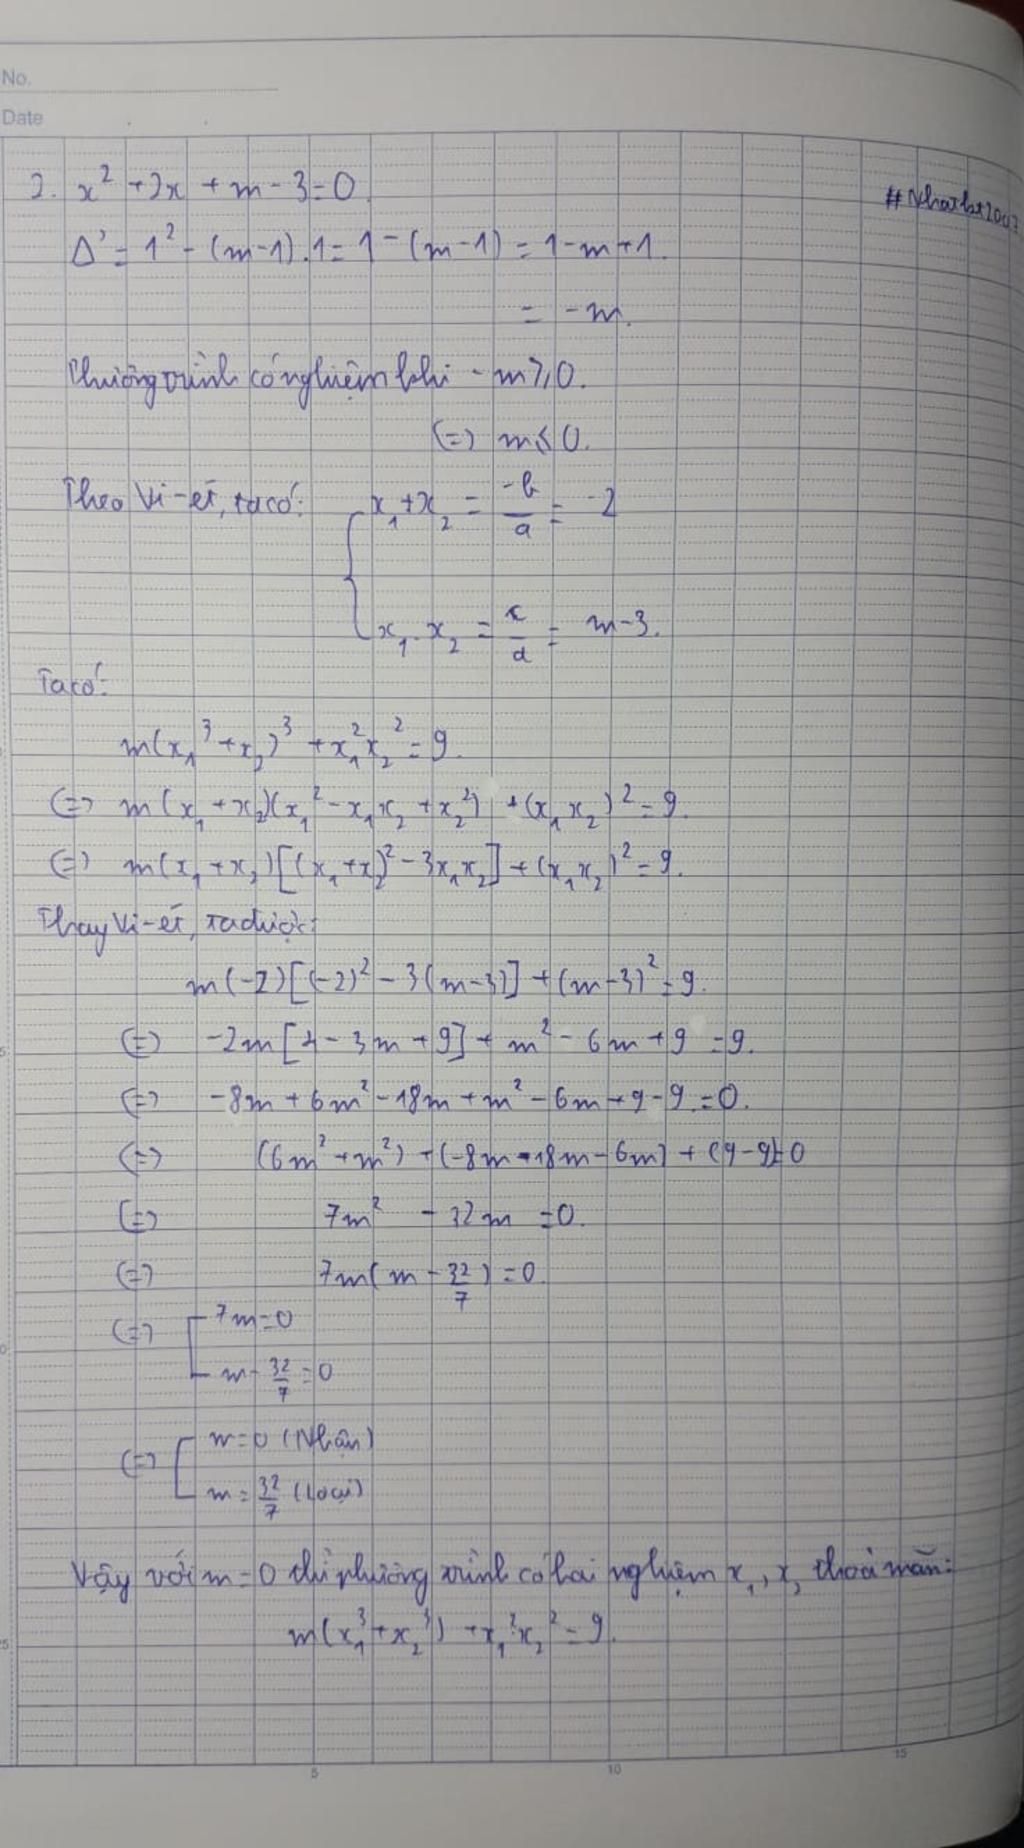 No.
Date
2. x² + 2x + m - 3 = 0
#Nhatht2007
Δ' = 1² - (m-1).1 = 1 - (m-1) = 1 - m + 1.
= -m.
Phương trình có nghiệm khi -m ≥ 0.
(=) m ≤ 0.
Theo Vi-ét, ta có: x₁ + x₂ = -b/a = -2
x₁.x₂ = c/a = m-3.
Ta có:
m(x₁³ + x₂)³ + x₁²x₂² = 9.
(=) m(x₁ + x₂)(x₁² - x₁x₂ + x₂²) + (x₁x₂)² = 9.
(=) m(x₁ + x₂)[(x₁ + x₂)² - 3x₁x₂] + (x₁x₂)² = 9.
Thay Vi-ét, ta được:
m(-2)[(-2)² - 3(m-3)] + (m-3)² = 9.
(=) -2m[4 - 3m + 9] + m² - 6m + 9 = 9.
(=) -8m + 6m² - 18m + m² - 6m + 9 - 9 = 0.
(=) (6m² + m²) + (-8m - 18m - 6m) + (9-9) = 0
(=) 7m² - 32m = 0.
(=) 7m(m - 32/7) = 0.
(=) 7m = 0
m - 32/7 = 0
(=) m = 0 (Nhận)
m = 32/7 (Loại)
Vậy với m = 0 thì phương trình có hai nghiệm x₁, x₂ thoả mãn:
m(x₁³ + x₂³) + x₁²x₂² = 9.
5
10
15